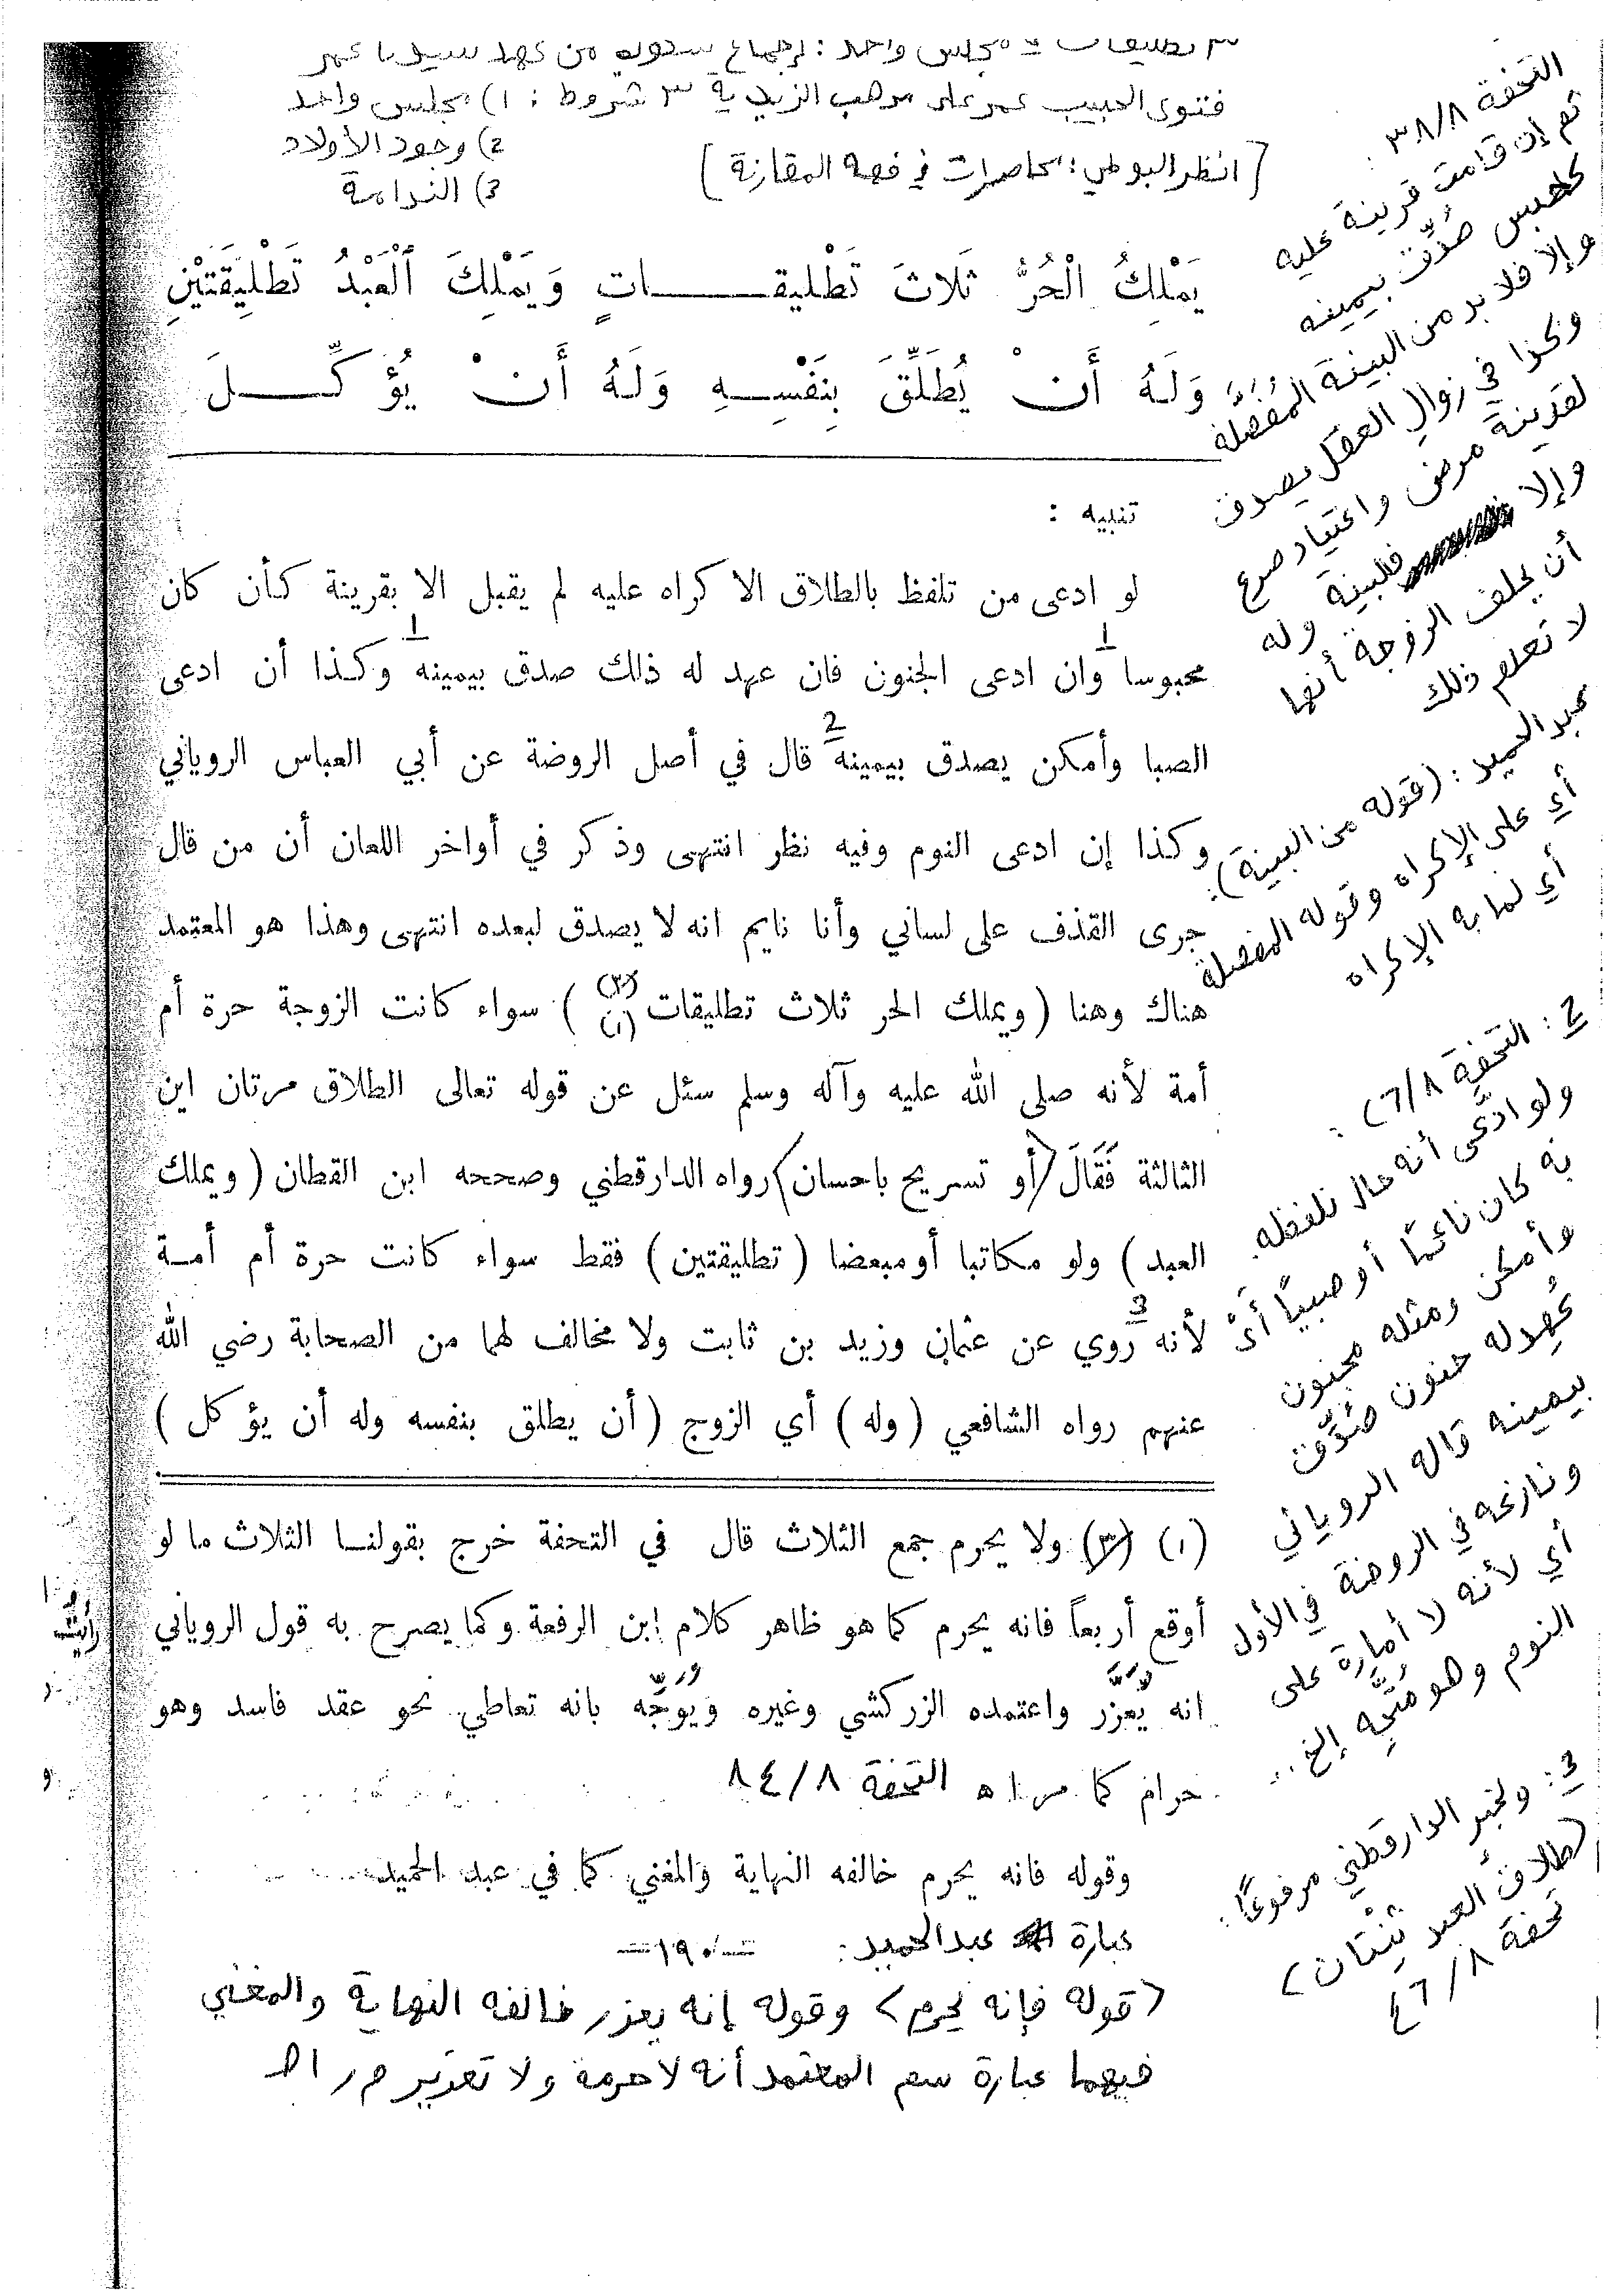 ٣ تطليقات في مجلس واحد : إجماع سكوتي من عهد سيدنا عمر
فتوى الحبيب عمر على مذهب الزيدية ٣ شروط : ١) مجلس واحد
2) وجود الأولاد
3) الندامة
[انظر البوطي : محاضرات في فقه المقارنة]
يَمْلِكُ الْحُرُّ ثَلاثَ تَطْليقـــــاتٍ وَيَمْلِكَ ٱلْعَبْدُ تَطْلِيقَتَيْنِ
وَلَهُ أَنْ يُطَلِّقَ بِنَفْسِهِ وَلَهُ أَنْ يُؤَكِّـــلَ
تنبيه :
لو ادعى من تلفظ بالطلاق الاكراه عليه لم يقبل الا بقرينة كأن كان
محبوسا 1 وان ادعى الجنون فان عهد له ذلك صدق بيمينه 1 وكذا أن ادعى
الصبا وأمكن يصدق بيمينه 2 قال في أصل الروضة عن أبي العباس الروياني
وكذا إن ادعى النوم وفيه نظر انتهى وذكر في أواخر اللعان أن من قال
جرى القذف على لساني وأنا نايم انه لا يصدق لبعده انتهى وهذا هو المعتمد
هناك وهنا (ويملك الحر ثلاث تطليقات (١) ) سواء كانت الزوجة حرة أم
أمة لأنه صلى الله عليه وآله وسلم سئل عن قوله تعالى الطلاق مرتان اين
الثالثة فَقَالَ (أو تسريح باحسان) رواه الدارقطني وصححه ابن القطان (ويملك
العبد) ولو مكاتبا أومبعضا (تطليقتين) فقط سواء كانت حرة أم أمـة
لأنه 3 روي عن عثمان وزيد بن ثابت ولا مخالف لهما من الصحابة رضي الله
عنهم رواه الشافعي (وله) أي الزوج (أن يطلق بنفسه وله أن يؤكل)
(١) (٣) ولا يحرم جمع الثلاث قال في التحفة خرج بقولنـا الثلاث ما لو
أوقع أربعاً فانه يحرم كما هو ظاهر كلام ابن الرفعة وكما يصرح به قول الروياني
انه يُعَزَّر واعتمده الزركشي وغيره وَيُوَجَّه بانه تعاطي نحو عقد فاسد وهو
حرام كما مر اه التحفة ٨٤/٨
وقوله فانه يحرم خالفه النهاية والمغني كما في عبد الحميد
عبارة عبدالحميد :
– ١٩٠ –
(قوله فإنه يحرم) وقوله إنه يعزر خالفه النهاية والمغني
فيهما عبارة سم المعتمد أنه لا حرمة ولا تعزير م ر اه
التحفة ٣٨/٨ :
ثم إن قامت قرينة عليه
كحبس صُدِّق بيمينه
وإلا فلا بد من البينة المُفَصَّلة
وكذا في زوال العقل يصدق
لقرينة مرض واعتياد صرع
وإلا فالبينة وله
أن يحلف الزوجة أنها
لا تعلم ذلك
عبد الحميد : (قوله من البينة) :
أي على الإكراه وقوله المفصلة
أي لما به الإكراه
2 : التحفة
ولو ادَّعى أنه حال تلفظه
به كان نائمًا أو صبيًّا أيْ
وأمكن ومثله مجنون
عُهِد له جنون صُدِّق
بيمينه قاله الروياني
ونازعه في الروضة في الأول
أي لأنه لا أمارة على
النوم وهو مُتَّجِه إلخ ..
3 : ولخبر الدارقطني مرفوعًا :
(طلاق العبد ثِنْتان)
تحفة
رأيت